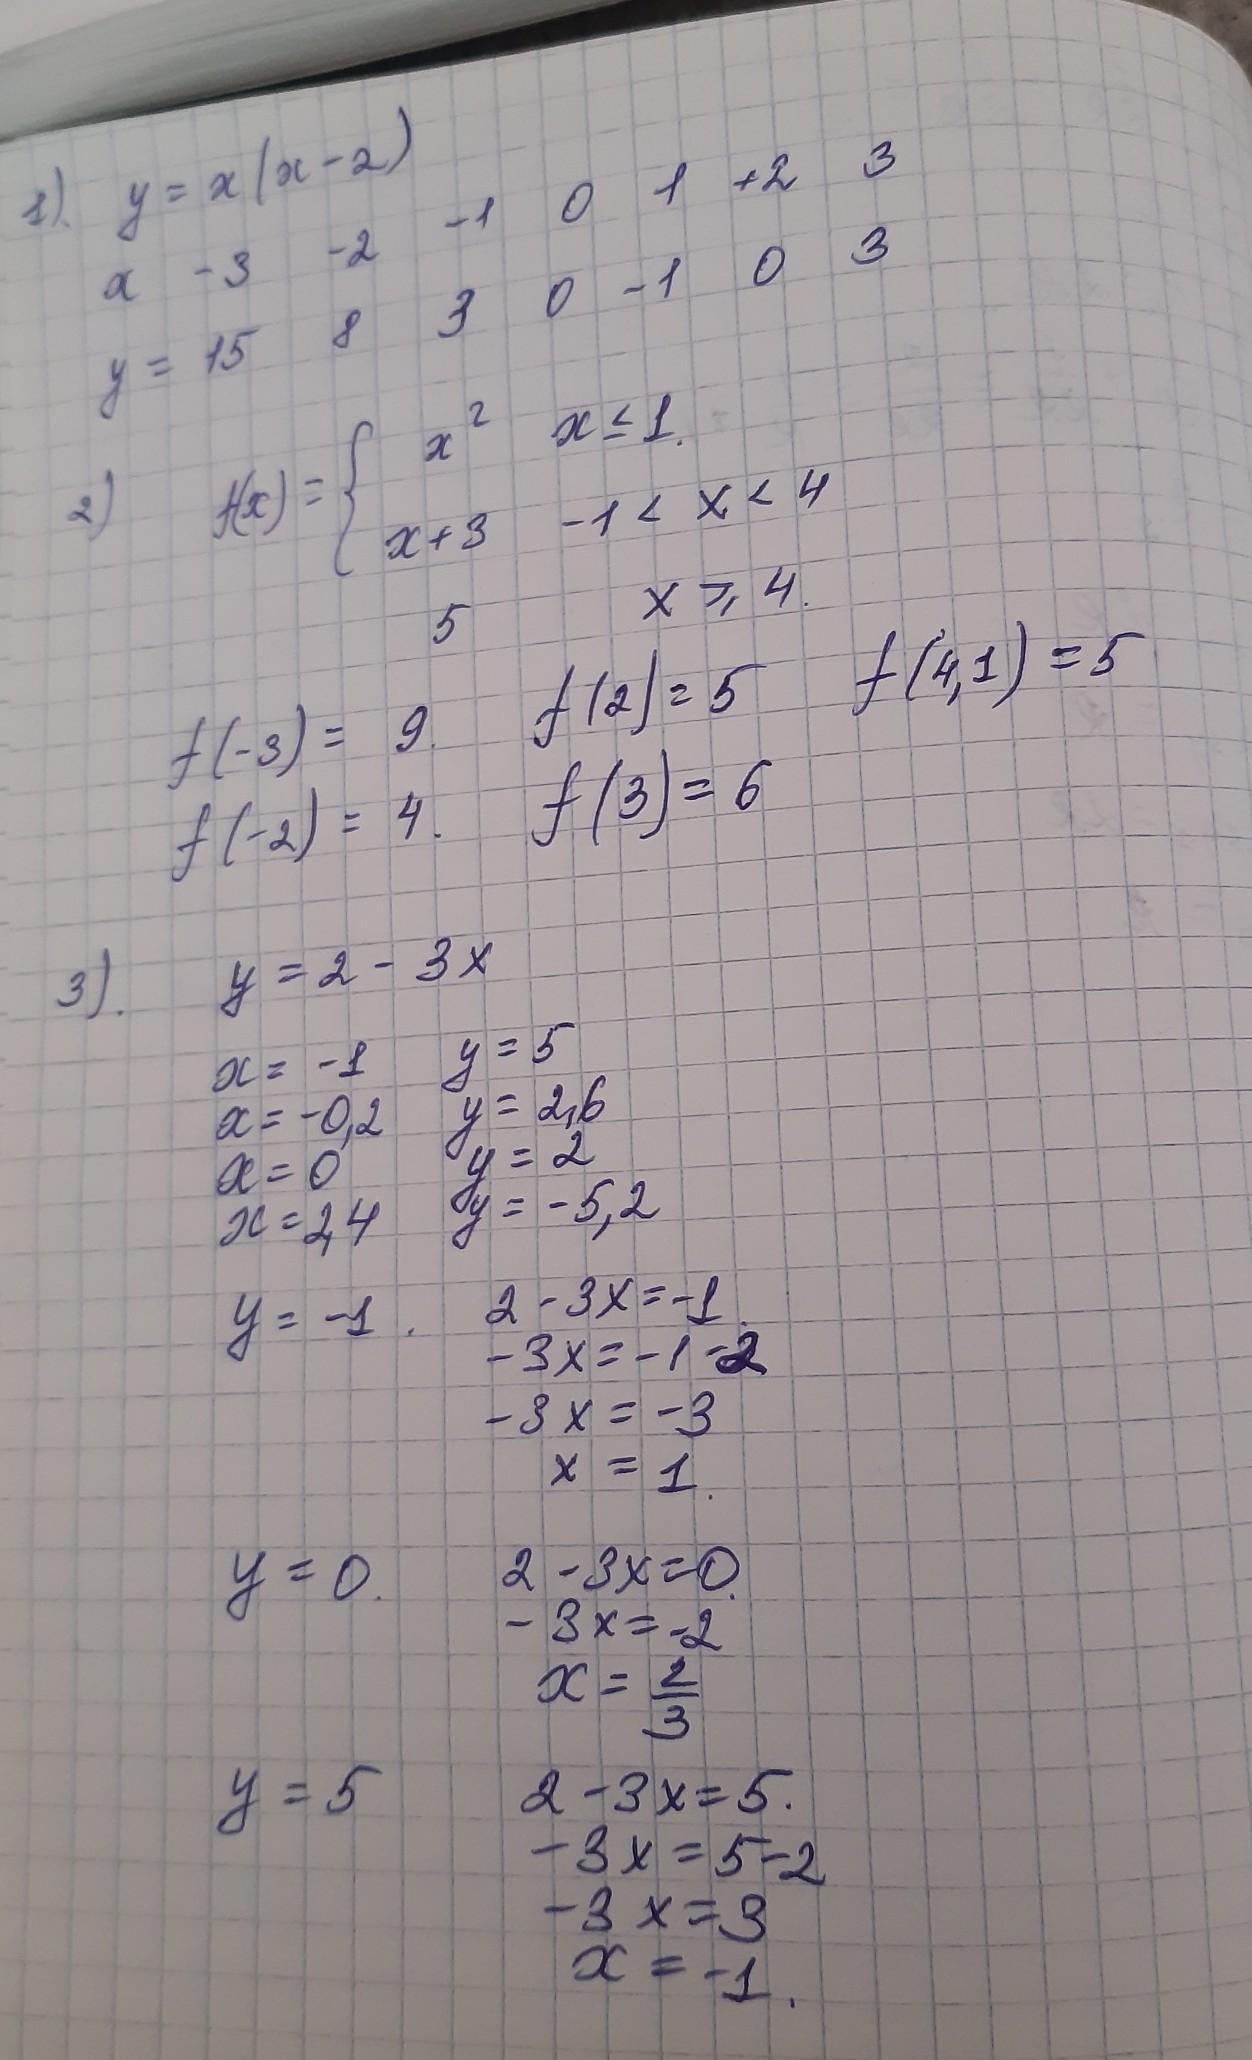 1). y = x(x-2)
x -3 -2 -1 0 1 +2 3
y = 15 8 3 0 -1 0 3
2) f(x) = { x² x ≤ 1.
x+3 -1 < x < 4
5 x ⩾ 4.
f(-3) = 9. f(2) = 5 f(4,1) = 5
f(-2) = 4. f(3) = 6
3). y = 2 - 3x
x = -1 y = 5
x = -0,2 y = 2,6
x = 0 y = 2
x = 2,4 y = -5,2
y = -1. 2 - 3x = -1.
-3x = -1 -2
-3x = -3
x = 1.
y = 0. 2 - 3x = 0.
-3x = -2
x = 2/3
y = 5 2 - 3x = 5.
-3x = 5-2
-3x = 3
x = -1.